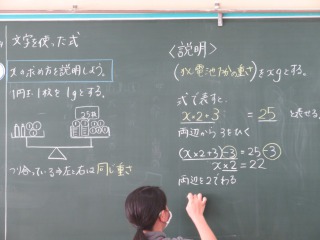 文字を使った式
xの求め方を説明しよう。
1円玉1枚を1gとする。
25コ
つり合っている→左と右は同じ重さ
〈説明〉
をxgとする。
式で表すと、
x×2+3 = 25 と表せる。
両辺から3をひく
(x×2+3)-3 = 25-3
x×2 = 22
両辺を2でわる